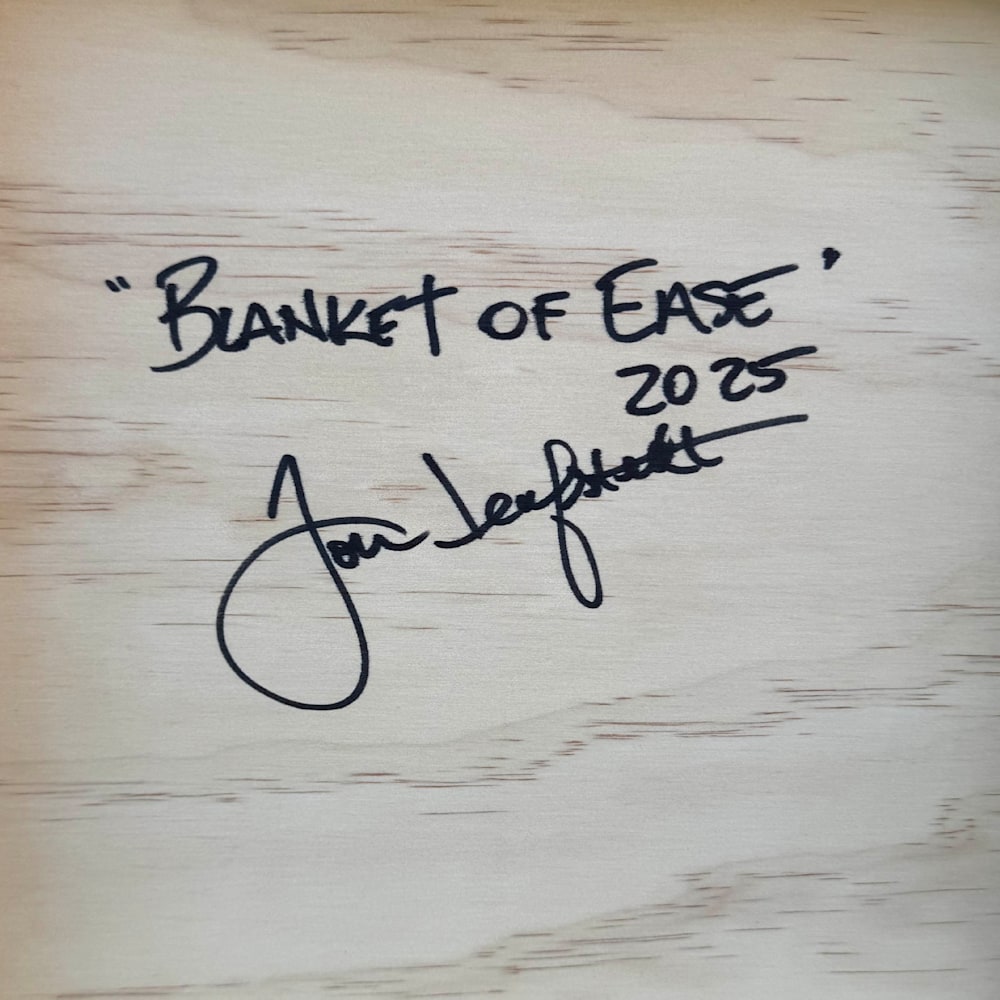 "BLANKET OF EASE"
2025